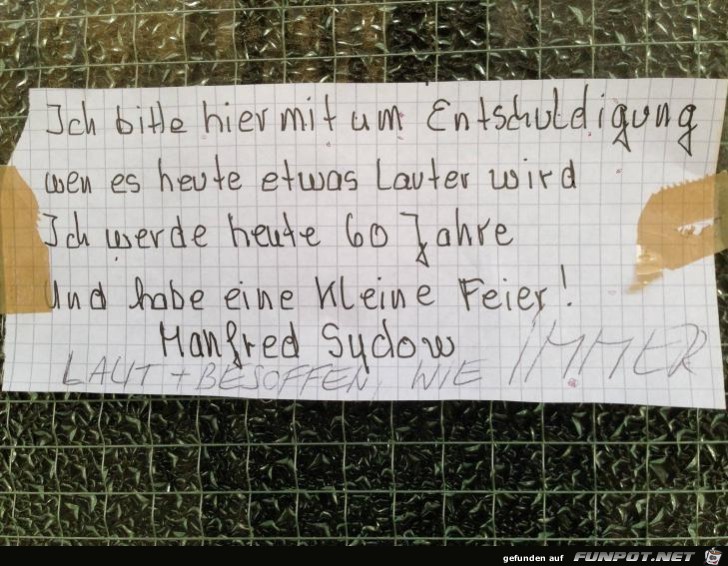 Ich bitte hiermit um Entschuldigung
wen es heute etwas Lauter wird
Ich werde heute 60 Jahre
Und habe eine Kleine Feier!
Manfred Sydow
LAUT + BESOFFEN, WIE IMMER
gefunden auf FUNPOT.NET